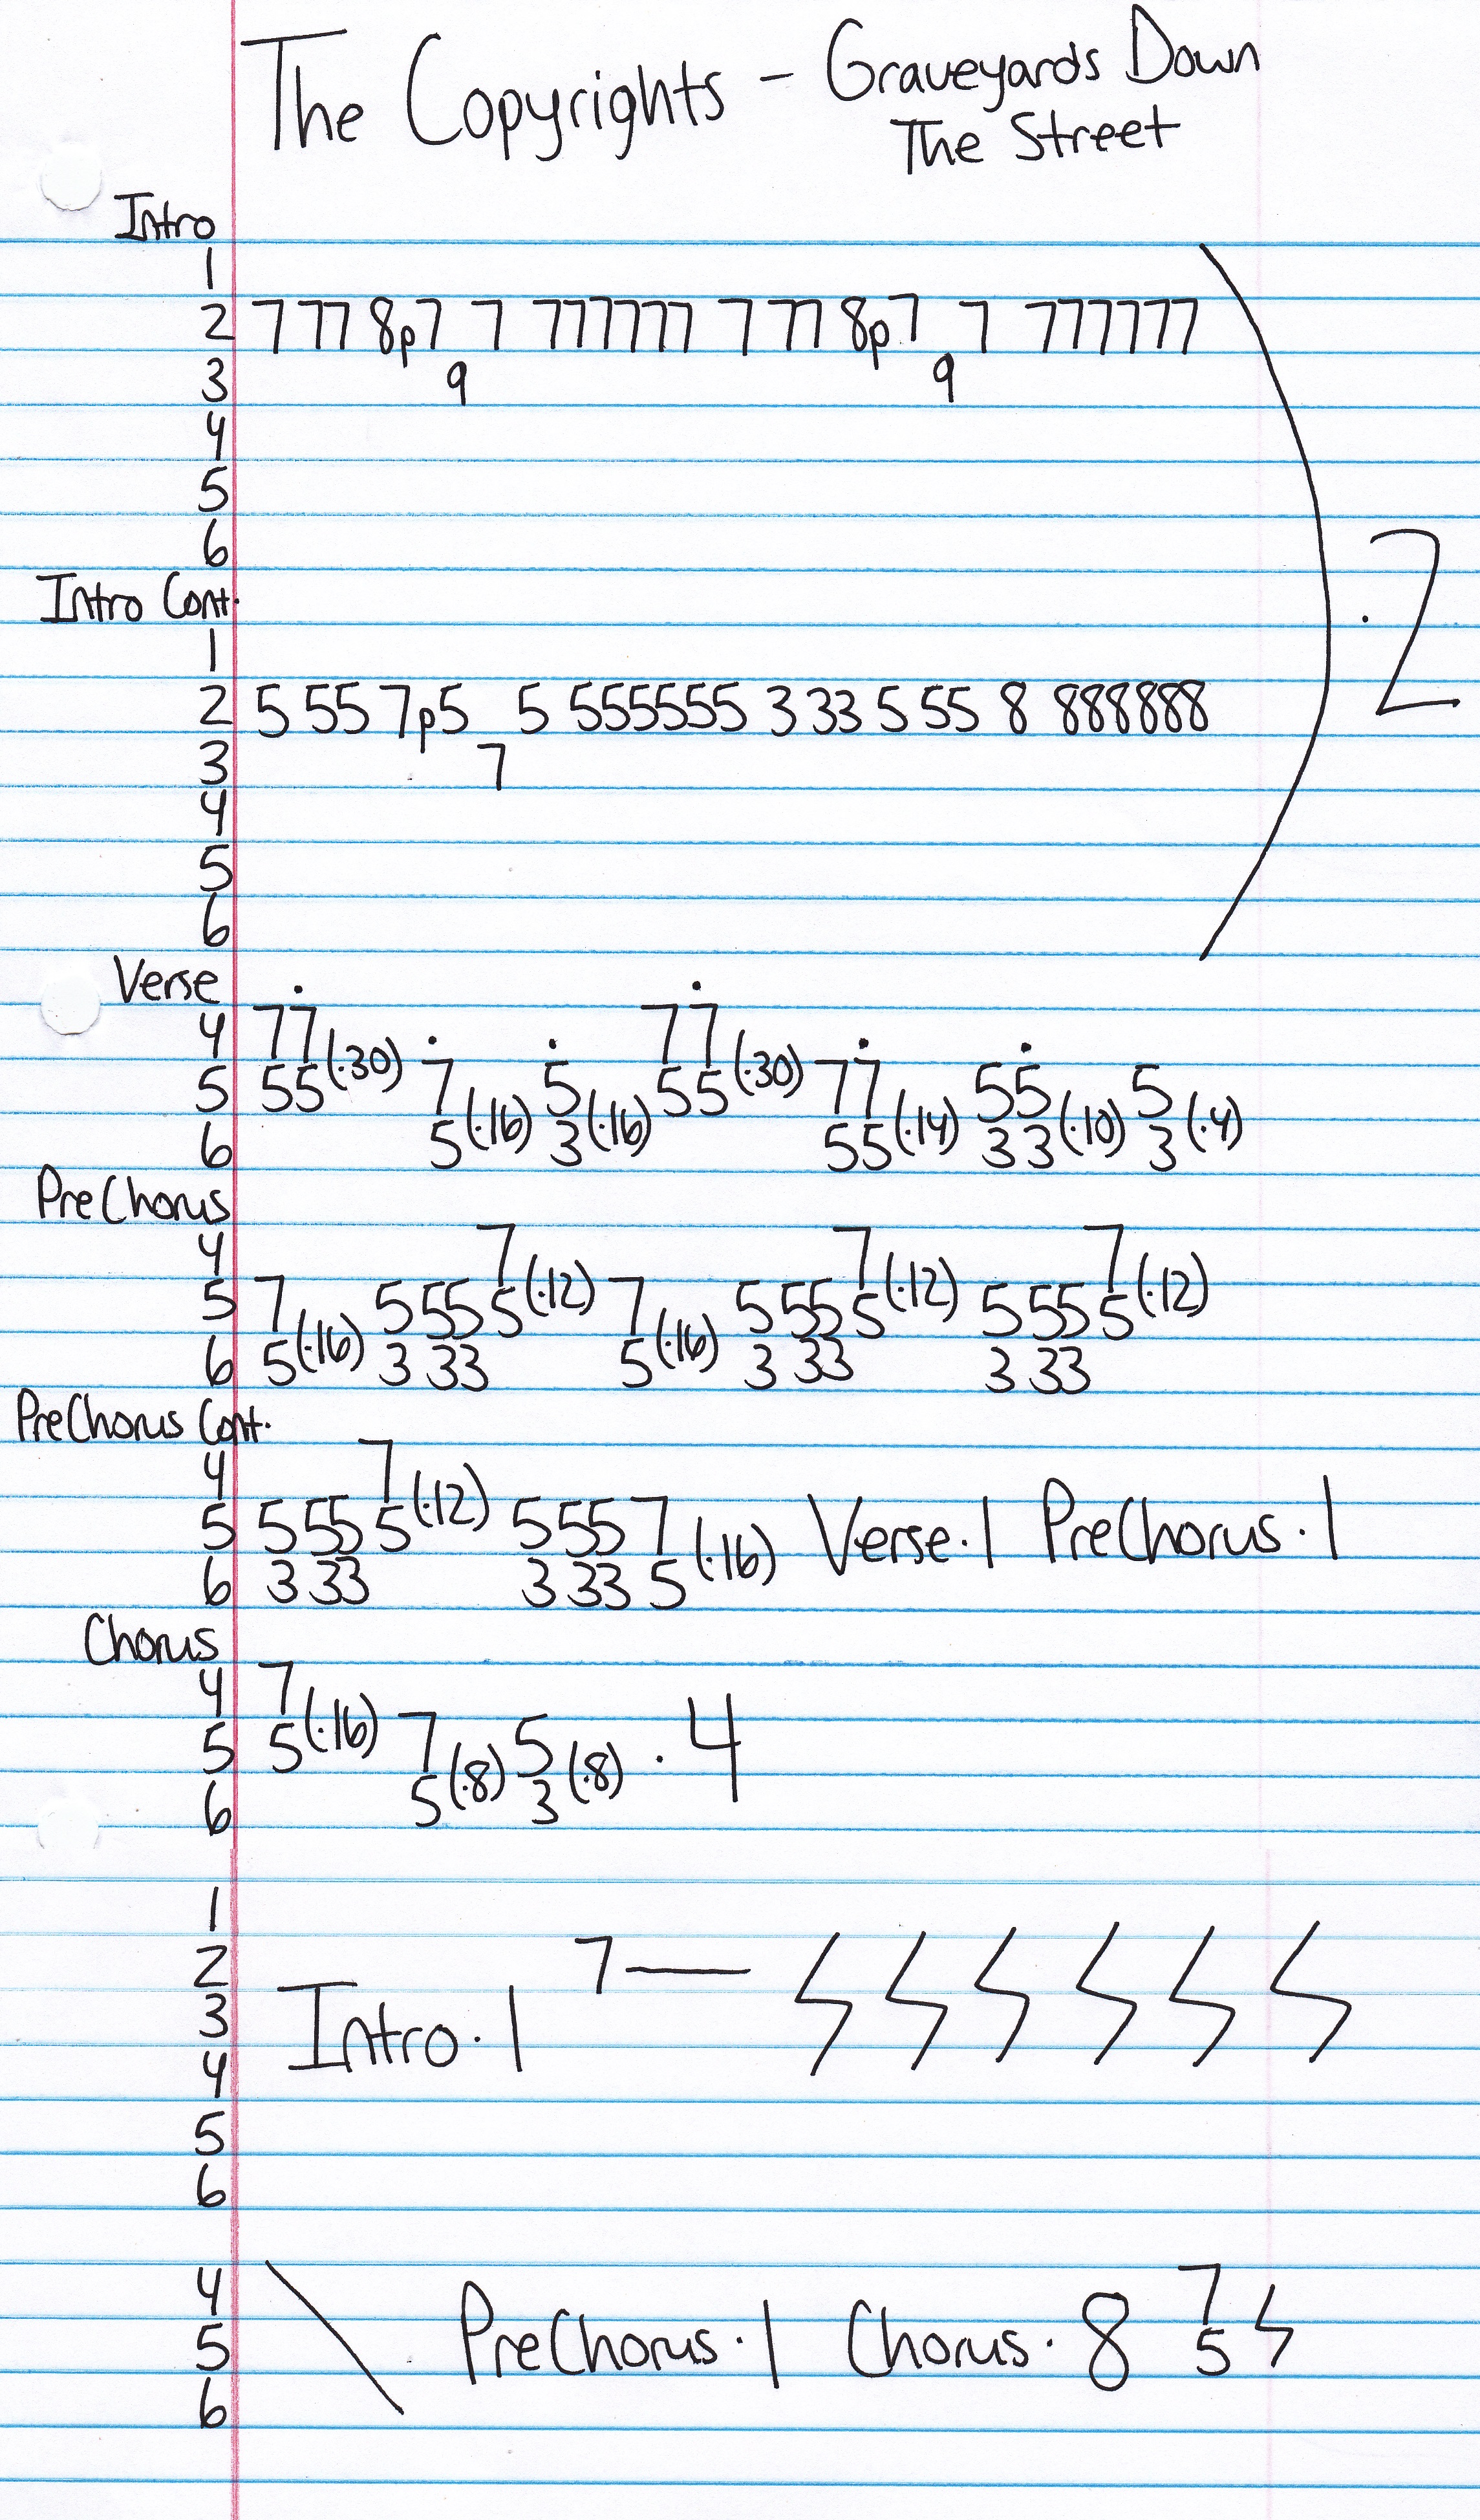 The Copyrights - Graveyards Down
The Street
Intro
1
2 7 77 8p7 7 777777 7 77 8p7 7 777777
3 9 9
4
5
6
·2
Intro Cont.
1
2 5 55 7p5 5 555555 3 33 5 55 8 888888
3 7
4
5
6
Verse
4 77 77
5 55(·30) 7 5 55(·30) 77 55 5
6 5(·16) 3(·16) 55(·14) 33(·10) 3(·4)
PreChorus
4 7 7 7
5 7 5 55 5(·12) 7 5 55 5(·12) 5 55 5(·12)
6 5(·16) 3 33 5(·16) 3 33 3 33
PreChorus Cont.
4 7
5 5 55 5(·12) 5 55 7 Verse·1 PreChorus·1
6 3 33 3 33 5(·16)
Chorus
4 7
5 5(·16) 7 5 ·4
6 5(·8) 3(·8)
1
2 7—
3 Intro·1
4
5
6
4 7
5 PreChorus·1 Chorus·8 5
6